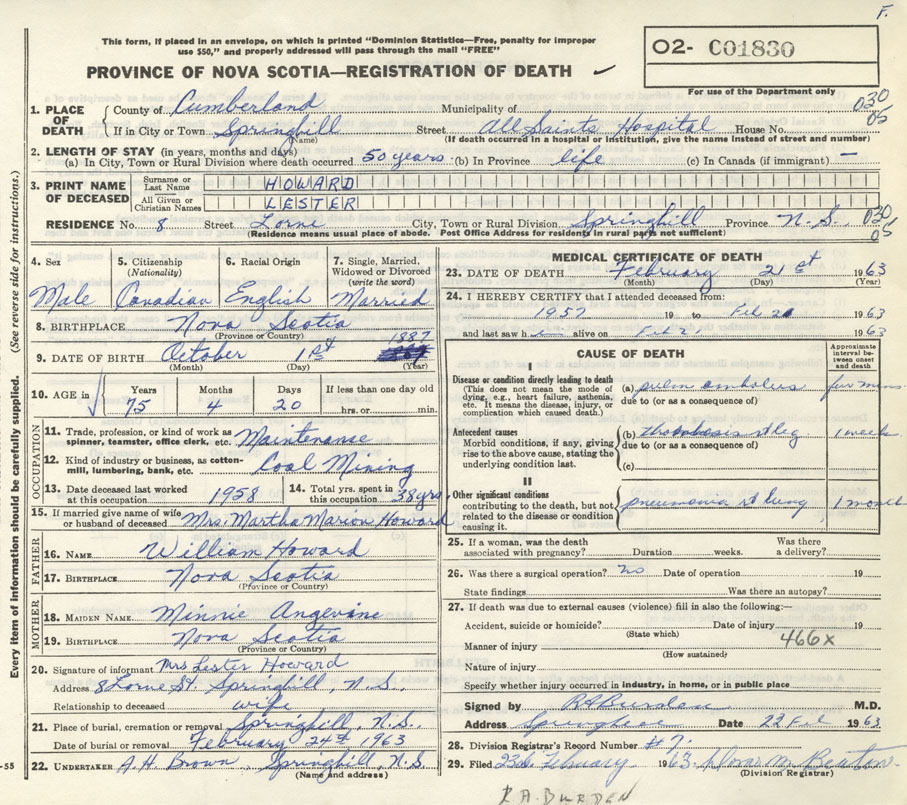 F.
This form, if placed in an envelope, on which is printed "Dominion Statistics—Free, penalty for improper
use $50," and properly addressed will pass through the mail "FREE"
O2- C01830
PROVINCE OF NOVA SCOTIA—REGISTRATION OF DEATH
For use of the Department only
030
05
1. PLACE OF DEATH County of Cumberland Municipality of
If in City or Town Springhill Street All Saints Hospital House No.
(Name) (If death occurred in a hospital or institution, give the name instead of street and number)
2. LENGTH OF STAY (in years, months and days)
(a) In City, Town or Rural Division where death occurred 50 years (b) In Province life (c) In Canada (if immigrant) —
3. PRINT NAME OF DECEASED Surname or Last Name HOWARD
All Given or Christian Names LESTER
RESIDENCE No. 8 Street Lorne City, Town or Rural Division Springhill Province N.S. 030
05
(Residence means usual place of abode. Post Office Address for residents in rural parts not sufficient)
4. Sex Male
5. Citizenship (Nationality) Canadian
6. Racial Origin English
7. Single, Married, Widowed or Divorced (write the word) Married
8. BIRTHPLACE Nova Scotia
(Province or County)
9. DATE OF BIRTH October 1st 1887
(Month) (Day) (Year)
10. AGE in Years 75 Months 4 Days 20 If less than one day old hrs. or min.
OCCUPATION
11. Trade, profession or kind of work as spinner, teamster, office clerk, etc. Maintenance
12. Kind of industry or business, as cotton-mill, lumbering, bank, etc. Coal Mining
13. Date deceased last worked at this occupation 1958
14. Total yrs. spent in this occupation 38 yrs
15. If married give name of wife or husband of deceased Mrs. Martha Marion Howard
FATHER
16. NAME William Howard
17. BIRTHPLACE Nova Scotia
(Province or County)
MOTHER
18. MAIDEN NAME Minnie Angevine
19. BIRTHPLACE Nova Scotia
(Province or County)
20. Signature of informant Mrs Lester Howard
Address 8 Lorne St. Springhill, N.S.
Relationship to deceased wife
21. Place of burial, cremation or removal Springhill, N.S.
Date of burial or removal February 24th 1963
22. UNDERTAKER A.H. Brown, Springhill, N.S.
(Name and address)
Every item of information should be carefully supplied. (See reverse side for instructions.)
-55
MEDICAL CERTIFICATE OF DEATH
23. DATE OF DEATH February 21st 1963
(Month) (Day) (Year)
24. I HEREBY CERTIFY that I attended deceased from:
1957 19 to Feb 21 1963
and last saw him alive on Feb 21 1963
CAUSE OF DEATH
Approximate interval between onset and death
I
Disease or condition directly leading to death
(This does not mean the mode of dying, e.g., heart failure, asthenia, etc. It means the disease, injury, or complication which caused death.)
(a) pulm embolus few mins
due to (or as a consequence of)
Antecedent causes
Morbid conditions, if any, giving rise to the above cause, stating the underlying condition last.
(b) thrombosis rt leg 1 week
due to (or as a consequence of)
(c)
II
Other significant conditions
contributing to the death, but not related to the disease or condition causing it.
pneumonia rt lung 1 month
25. If a woman, was the death associated with pregnancy? Duration weeks. Was there a delivery?
26. Was there a surgical operation? no Date of operation 19
State findings Was there an autopsy?
27. If death was due to external causes (violence) fill in also the following:—
Accident, suicide or homicide? Date of injury 19
(State which)
466x
Manner of injury
(How sustained)
Nature of injury
Specify whether injury occurred in industry, in home, or in public place
Signed by RABurden M.D.
Address Springhill Date 22 Feb 1963
28. Division Registrar's Record Number #7.
29. Filed 23d February 1963
(Division Registrar)
R.A. BURDEN